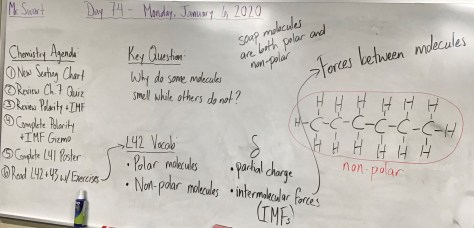 Mr Swart
Day 74 - Monday, January 6, 2020
Chemistry Agenda:
① New Seating Chart
② Review Ch. 7 Quiz
③ Review Polarity + IMF
④ Complete Polarity
+ IMF Gizmo
⑤ Complete L41 Poster
⑥ Read L42+43 w/ Exercises
Key Question:
Why do some molecules
smell while others do not?
L42 Vocab:
• Polar molecules
• Non-polar molecules
δ
• partial charge
• intermolecular forces
(IMFs)
soap molecules
are both polar and
non-polar
Forces between molecules
H H H H H H
H-C-C-C-C-C-C-H
H H H H H H
non-polar